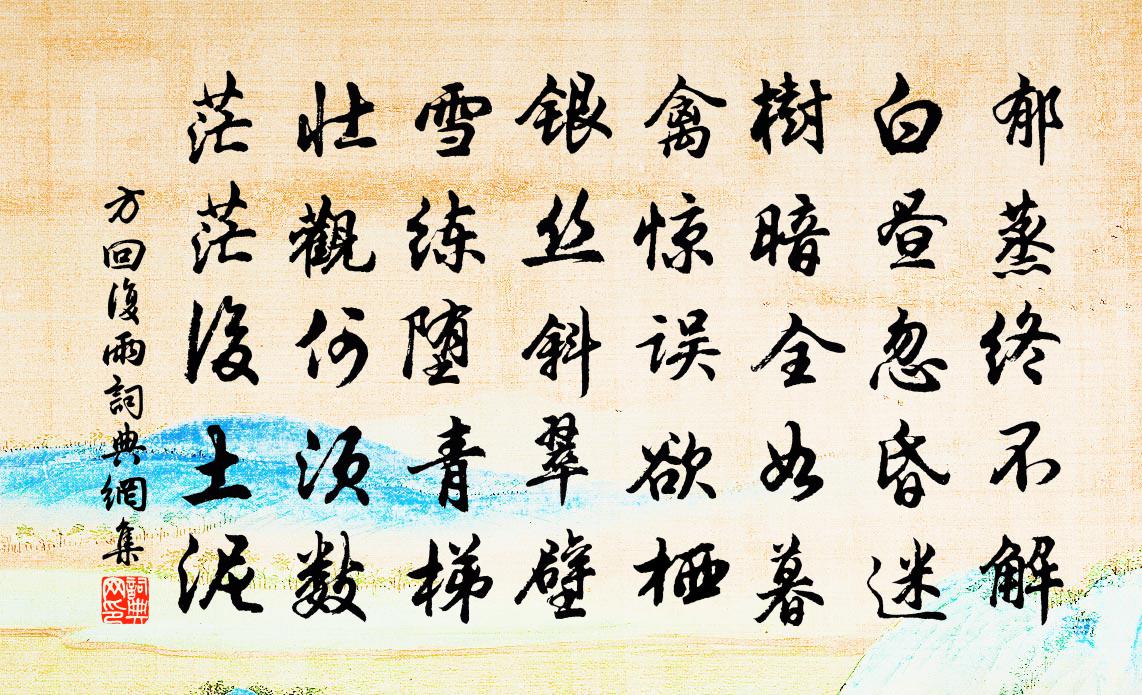 郁蒸终不解
白昼忽昏迷
樹暗全如暮
禽惊误欲栖
银丝斜翠壁
雪练堕青梯
壮觀何须数
茫茫後土泥
方回復雨詞典網集
詞典
网印